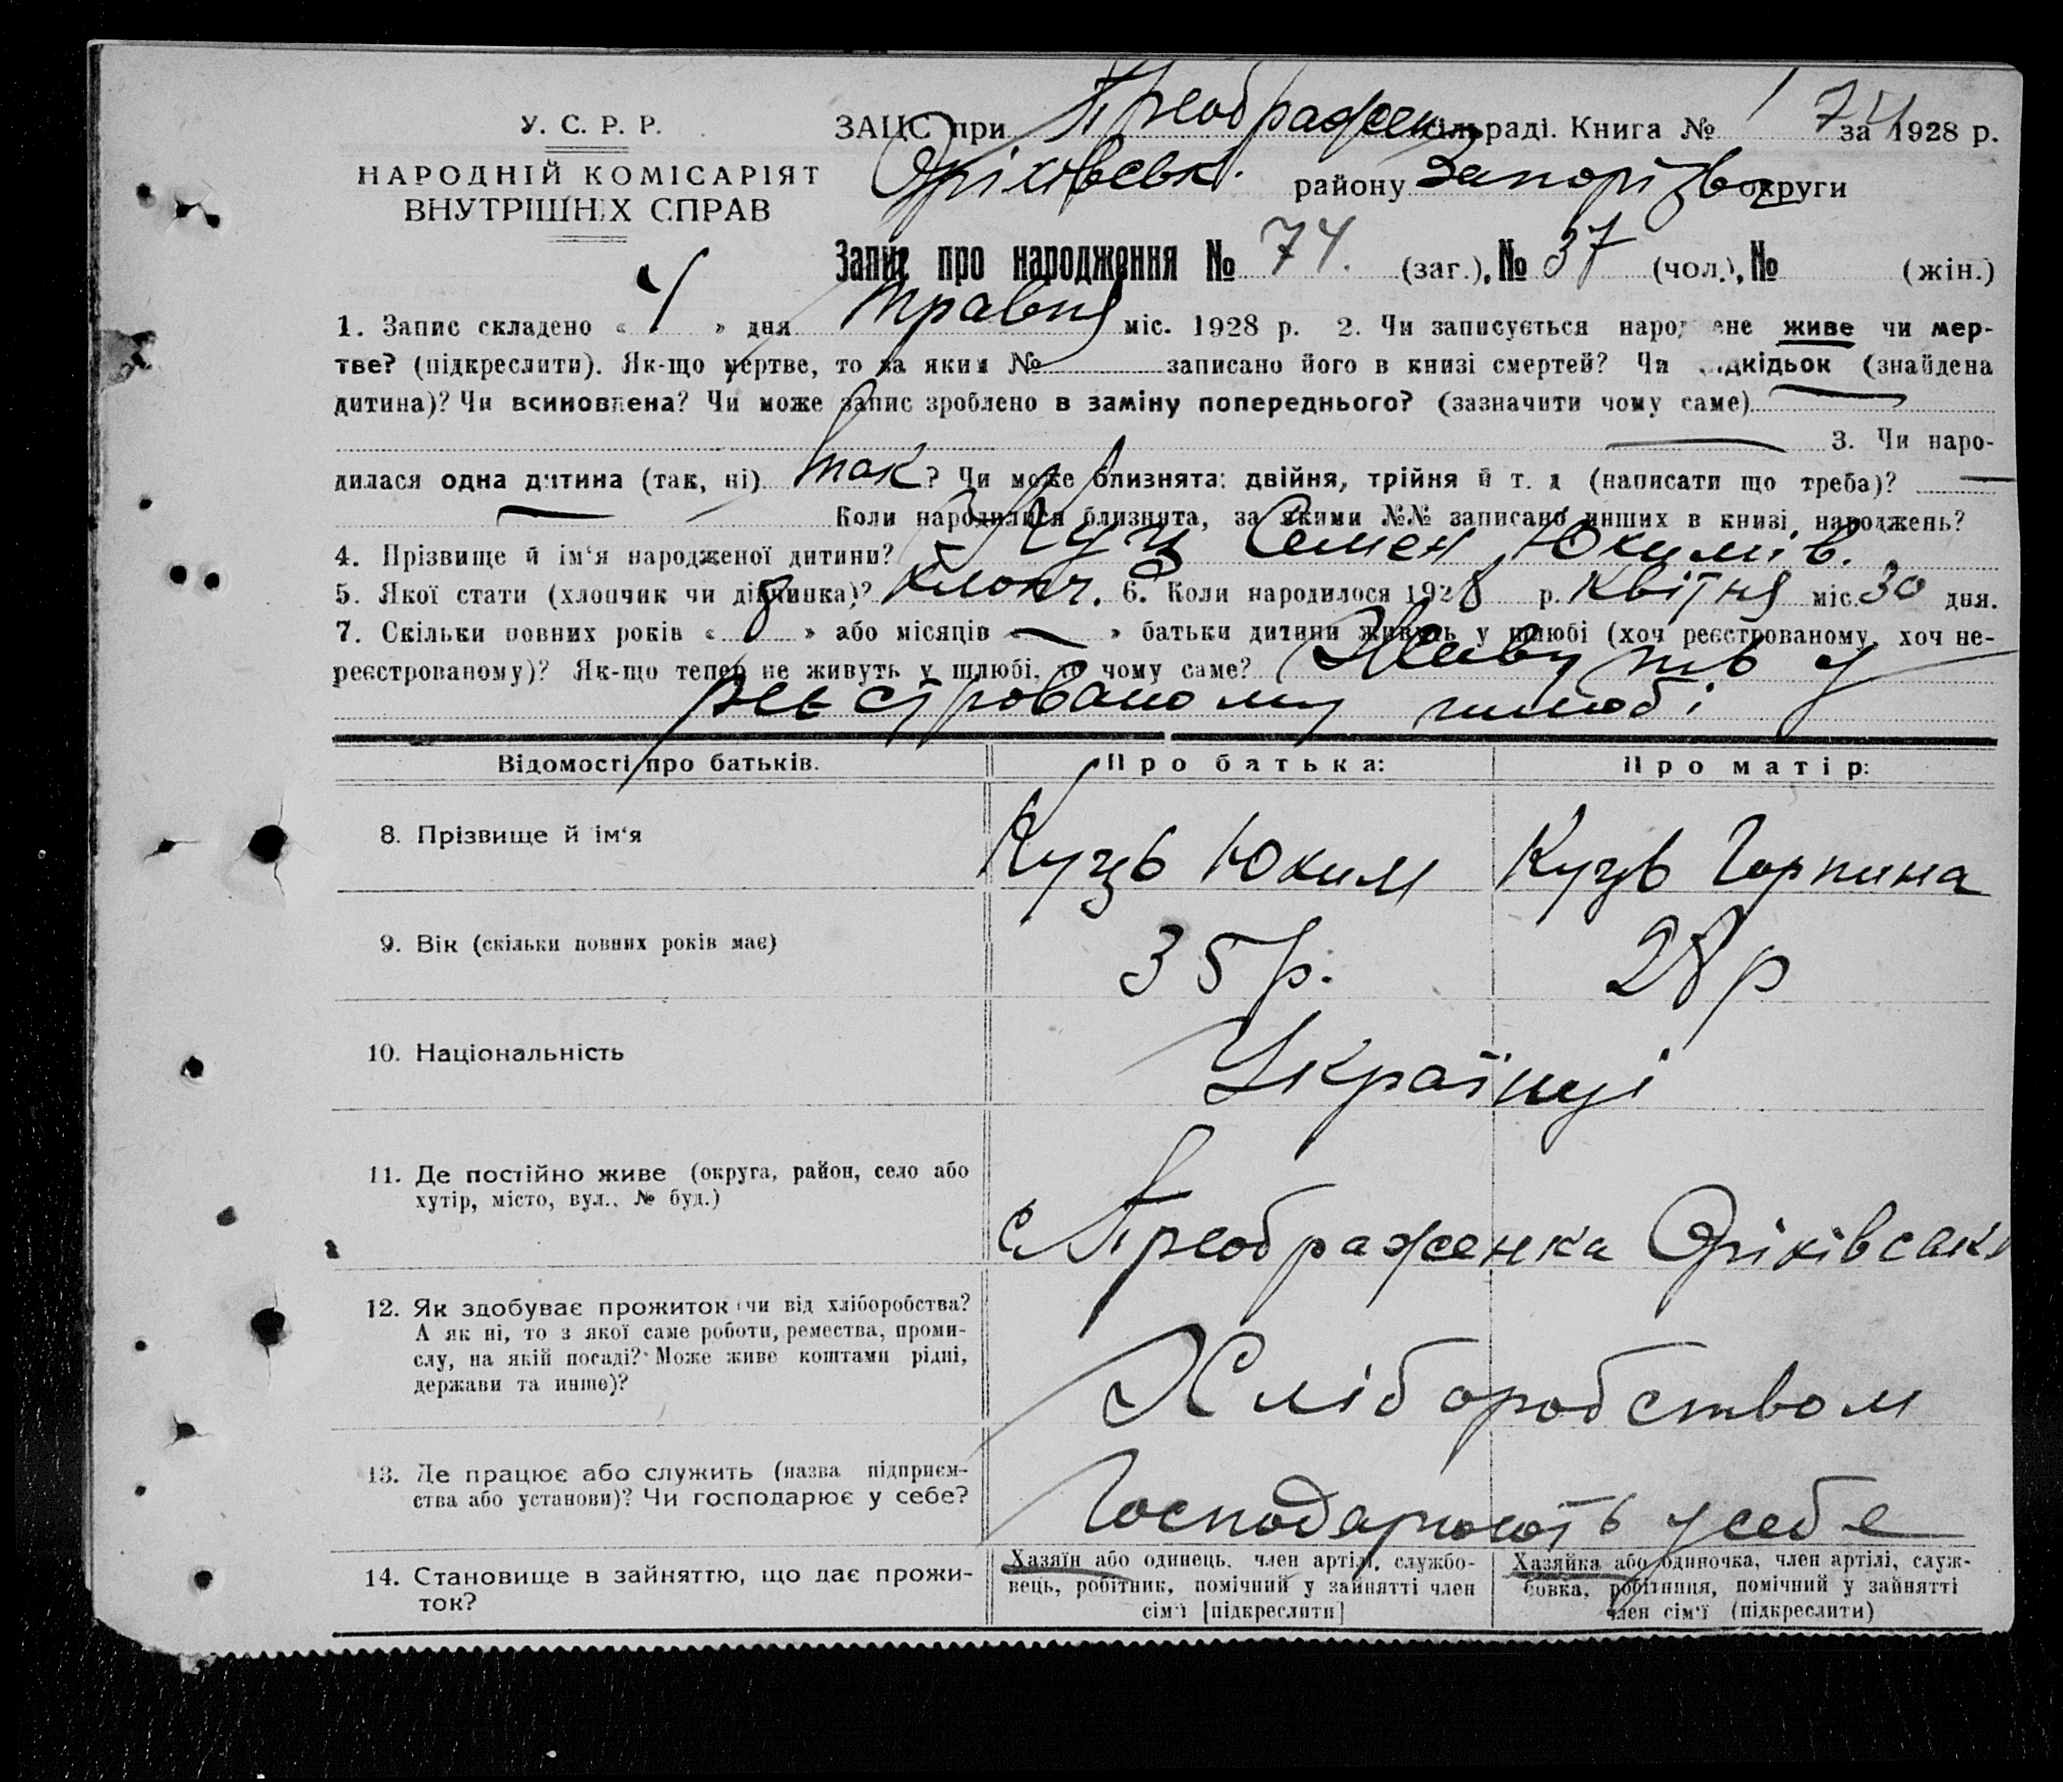 74
У. С. Р. Р.
ЗАЦС при Преображен сільраді. Книга № 1 за 1928 р.
НАРОДНІЙ КОМІСАРІЯТ
ВНУТРІШНІХ СПРАВ
Оріхівськ. району Запорізьк округи
Запис про народження № 74. (заг.), № 37 (чол.), № (жін.)
1. Запис складено « » дня травня міс. 1928 р. 2. Чи записується народжене живе чи мер-
тве? (підкреслити). Як-що мертве, то за яким № записано його в книзі смертей? Чи підкідьок (знайдена
дитина)? Чи всиновлена? Чи може запис зроблено в заміну попереднього? (зазначити чому саме) —
— 3. Чи наро-
дилася одна дитина (так, ні) так? Чи може близнята: двійня, трійня й т. д (написати що треба)? —
— Коли народилися близнята, за якими №№ записано инших в книзі народжень?
4. Прізвище й ім'я народженої дитини? Куц Семен Юхимів.
5. Якої стати (хлопчик чи дівчинка)? хлопч. 6. Коли народилося 1928 р. квітня міс. 30 дня.
7. Скільки повних років « 8 » або місяців « — » батьки дитини живуть у шлюбі (хоч реєстрованому, хоч не-
реєстрованому)? Як-що тепер не живуть у шлюбі, то чому саме? Живуть у
реєстрованому шлюбі
Відомості про батьків.
Про батька:
Про матір:
8. Прізвище й ім'я
Куць Юхим
Куць Горпина
9. Вік (скільки повних років має)
35 р.
28 р
10. Національність
Українці
11. Де постійно живе (округа, район, село або
хутір, місто, вул., № буд.)
с Преображенка Оріхівськ
12. Як здобуває прожиток (чи від хліборобства?
А як ні, то з якої саме роботи, ремества, проми-
слу, на якій посаді? Може живе коштами рідні,
держави та инше)?
Хліборобством
13. Де працює або служить (назва підприєм-
ства або установи)? Чи господарює у себе?
Господарюють у себе
14. Становище в зайняттю, що дає прожи-
ток?
Хазяїн або одинець, член артілі, службо-
вець, робітник, помічний у зайнятті член
сім'ї [підкреслити]
Хазяйка або одиночка, член артілі, служ-
бовка, робітниця, помічний у зайнятті
член сім'ї (підкреслити)